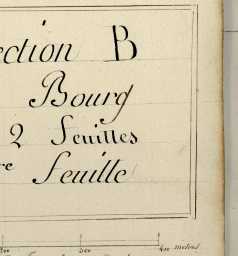 ection B
Bourg
2 Feuilles
re Feuille
300 400 metres